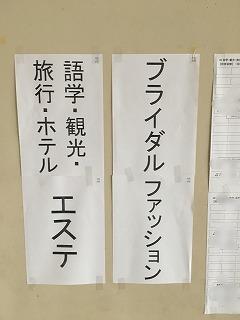 ブライダル
ファッション
語学・観光・
旅行・ホテル
エステ